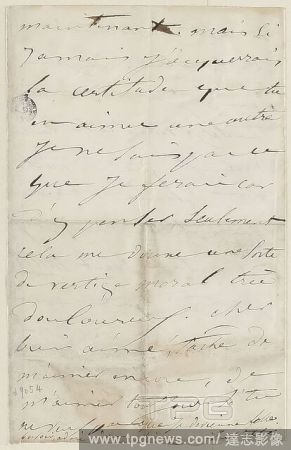 maintenant. mais si
jamais j'acquerrais
la certitude que tu
en aimes une autre
je ne sais pas ce
que je ferais car
d'y penser seulement
cela me donne une sorte
de vertige moral très
douloureux. cher
bien aimé tâche de
m'aimer encore, de
m'aimer toujours
ne
que je
TPG
www.tpgnews.com / 達志影像